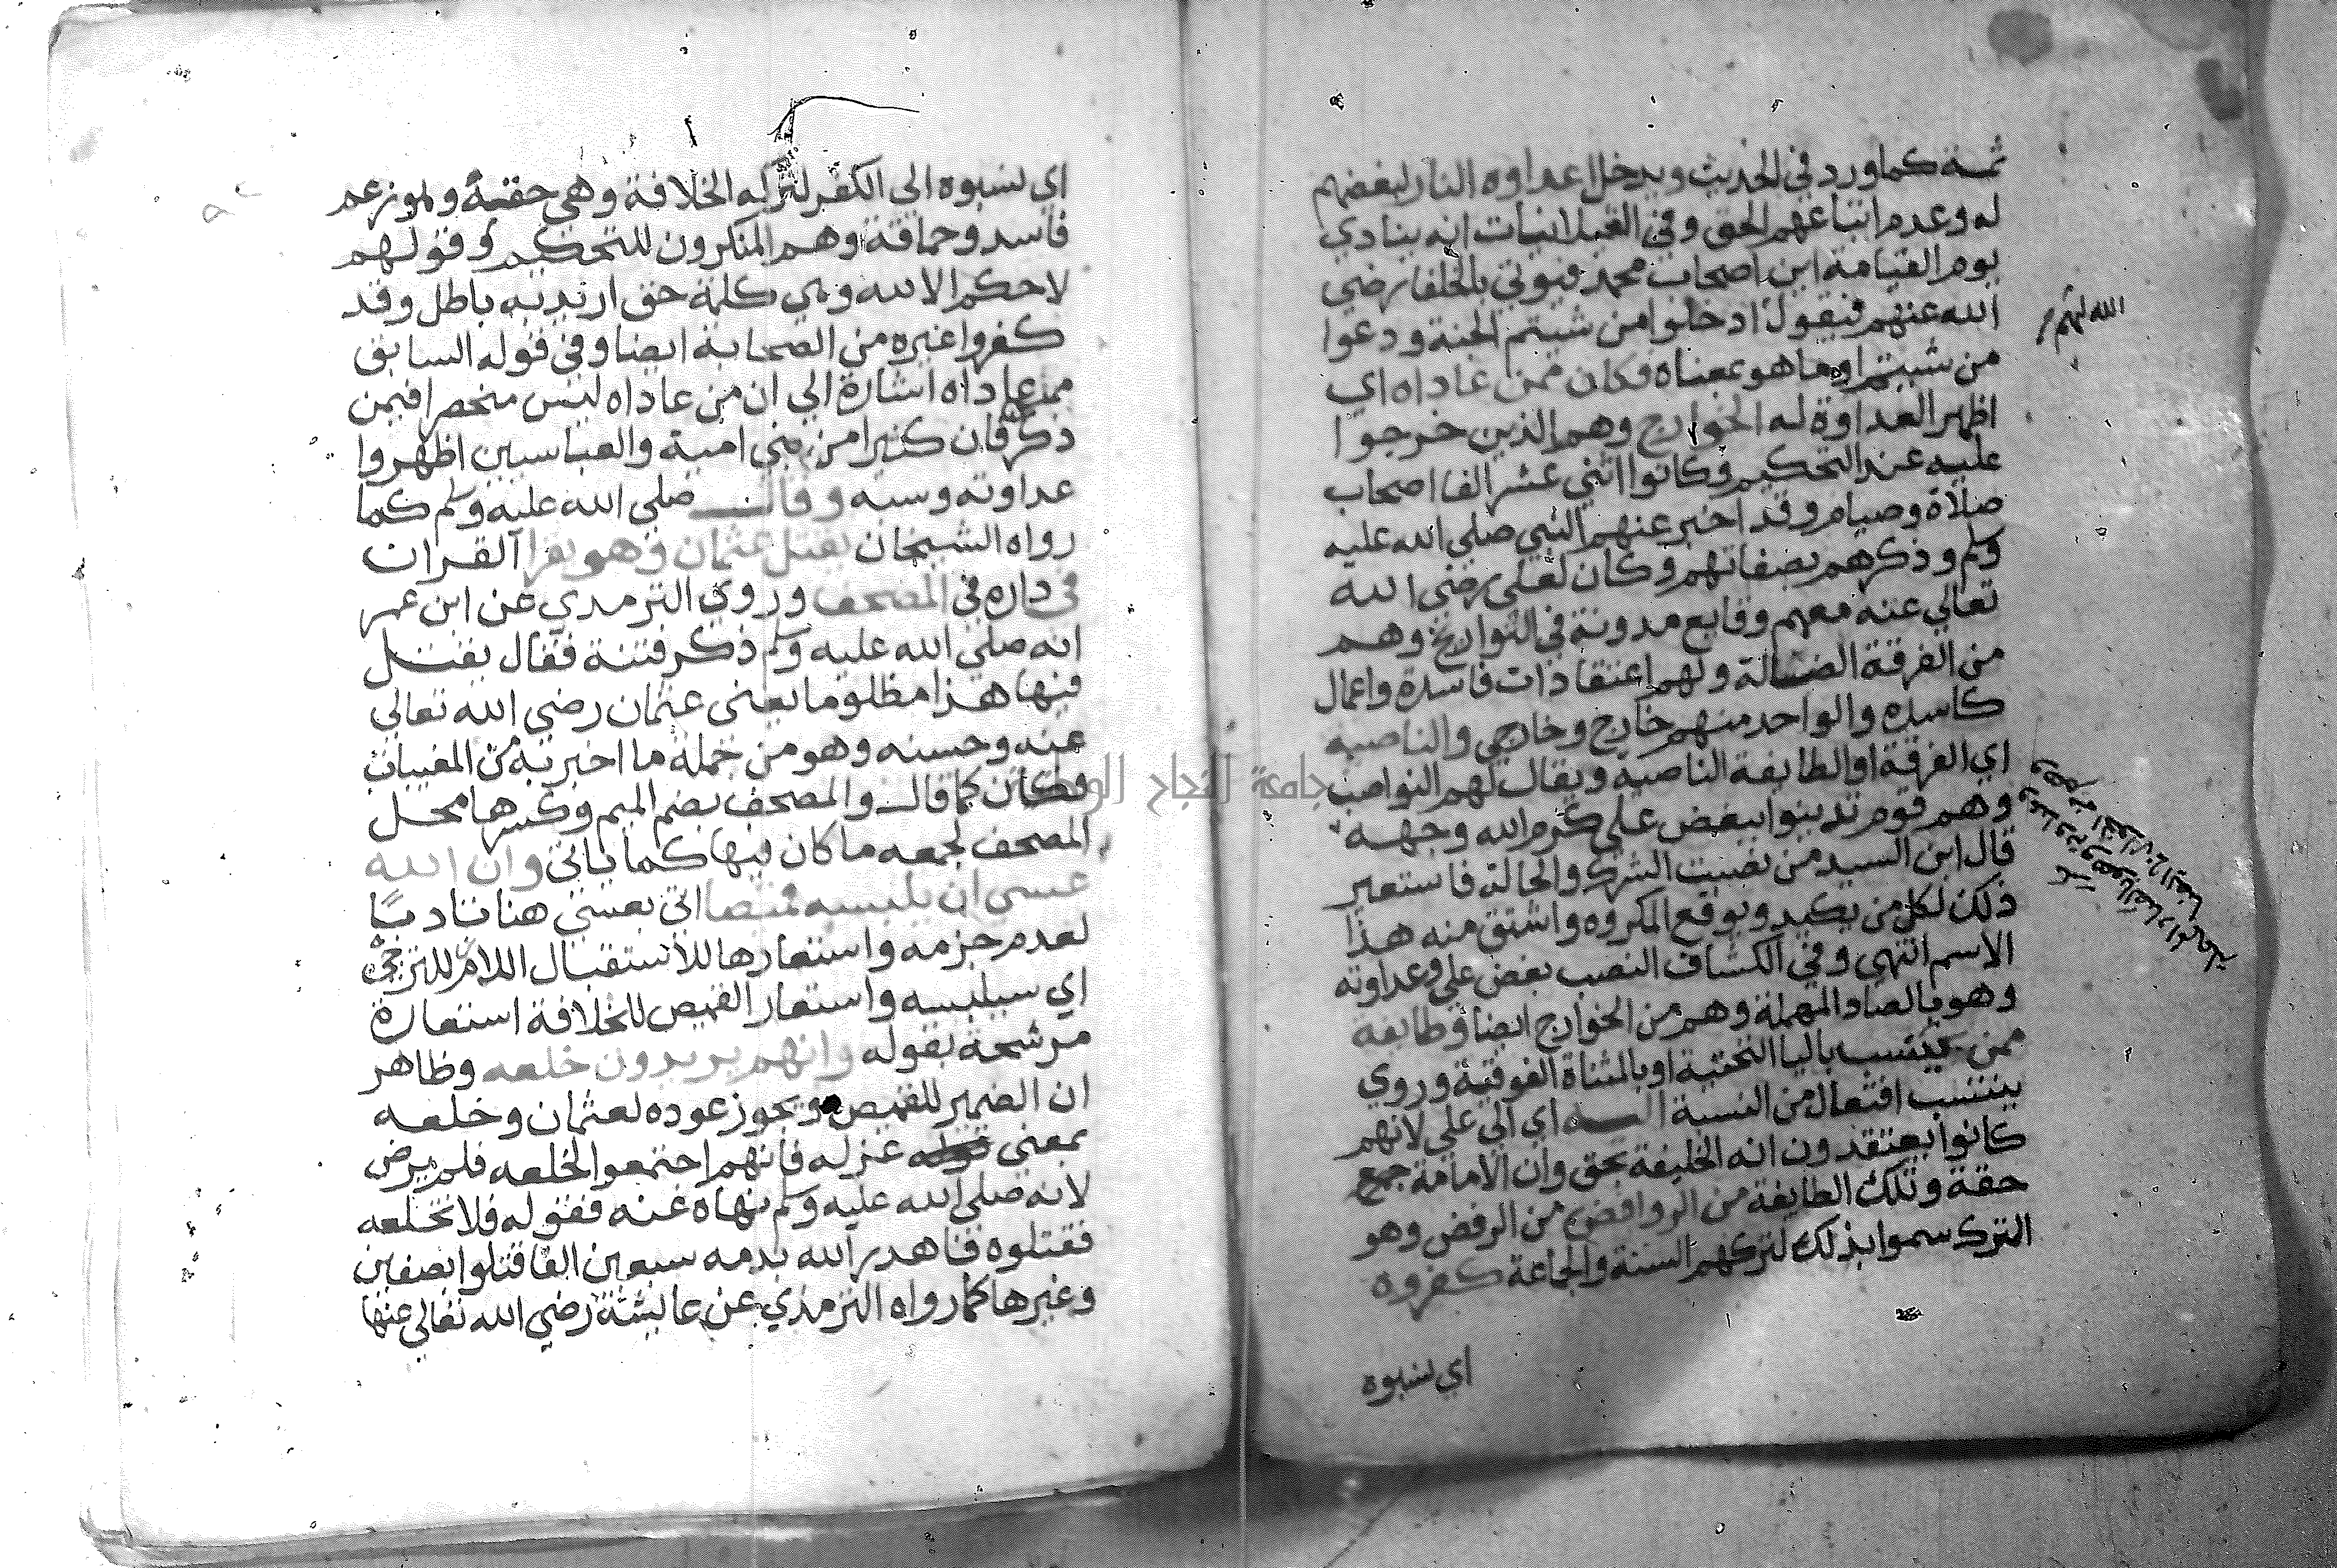 ثمة كما ورد في الحديث ويدخل اعداوه النار لبغضهم
له وعدم اتباعهم الحق وفي الغيلانيات انه ينادي
يوم القيامة اين اصحاب محمد فيوتي بالخلفا رضي
الله عنهم فيقول ادخلوا من شيتم الجنة ودعوا
الله لهم
من شيتم او ما هو بمعناه فكان ممن عاداه اي
اظهر العداوة له الخوارج وهم الذين خرجوا
عليه عند التحكيم وكانوا اثني عشر الفا اصحاب
صلاة وصيام وقد اخبر عنهم النبي صلى الله عليه
وسلم وذكرهم بصفاتهم وكان لعلي رضي الله
تعالي عنه معهم وقايع مدونة في التواريخ وهم
من الفرقة الضالة ولهم اعتقادات فاسدة واعمال
كاسدة والواحد منهم خارج وخارجي والناصبية
اي الفرقة او الطايفة الناصبة ويقال لهم النواصب
وهم قوم تدينوا ببغض علي كرم الله وجهه
قال ابن السيد من نصبت الشرك والحالة فاستعير
ذلك لكل من يكيد ويوقع المكروه واشتق منه هذا
الاسم انتهى وفي الكشاف النصب بغض علي وعداوته
وهو بالصاد المهملة وهم من الخوارج ايضا وطايفة
ممن ينتسب باليا التحتية او بالمثناة الفوقية وروي
ينتسب افتعال من النسبة اليه اي الي علي لانهم
كانوا يعتقدون انه الخليفة بحق وان الامامة جمع
حقة وتلك الطايفة من الروافض من الرفض وهو
الترك سموا بذلك لتركهم السنة والجماعة كفروه
اي نسبوه
اي نسبوه الى الكفر لتركه الخلافة وهي حقه وهو زعم
فاسد وحماقة وهم المنكرون للتحكيم وقولهم
لا حكم الا لله وهي كلمة حق اريد به باطل وقد
كفروا غيره من الصحابة ايضا وفي قوله السابق
ممن عاداه اشارة الي ان من عاداه ليس منحصرا فيمن
ذكر فان كثيرا من بني امية والعباسيين اظهروا
عداوته وسبه وقال صلى الله عليه وسلم كما
رواه الشيخان يقتل عثمان وهو يقرا القران
في داره في المصحف وروي الترمدي عن ابن عمر
انه صلى الله عليه وسلم ذكر فتنة فقال يقتل
فيها هذا مظلوما يعني عثمان رضي الله تعالي
عنه وحسنه وهو من جملة ما اخبر به من المغيبات
فكان كما قال والمصحف بضم الميم وكسرها محل
المصحف لجمعه ما كان فيها كما ياتي وان الله
عسى ان يلبسه قميصا اتى بعسى هنا تادبا
لعدم جزمه واستعارها للاستقبال اللام للترجي
اي سيلبسه واستعار القميص للخلافة استعارة
مرشحة بقوله وانهم يريدون خلعه وظاهر
ان الضمير للقميص ويجوز عوده لعثمان وخلعه
بمعنى عزله فانهم اجتمعوا لخلعه فلم يرض
لانه صلى الله عليه وسلم نهاه عنه فقوله فلا تخلعه
فقتلوه فاهدر الله بدمه سبعين الفا قتلوا بصفين
وغيرها كما رواه الترمذي عن عايشة رضي الله تعالى عنها
جامعة النجاح الوطنية